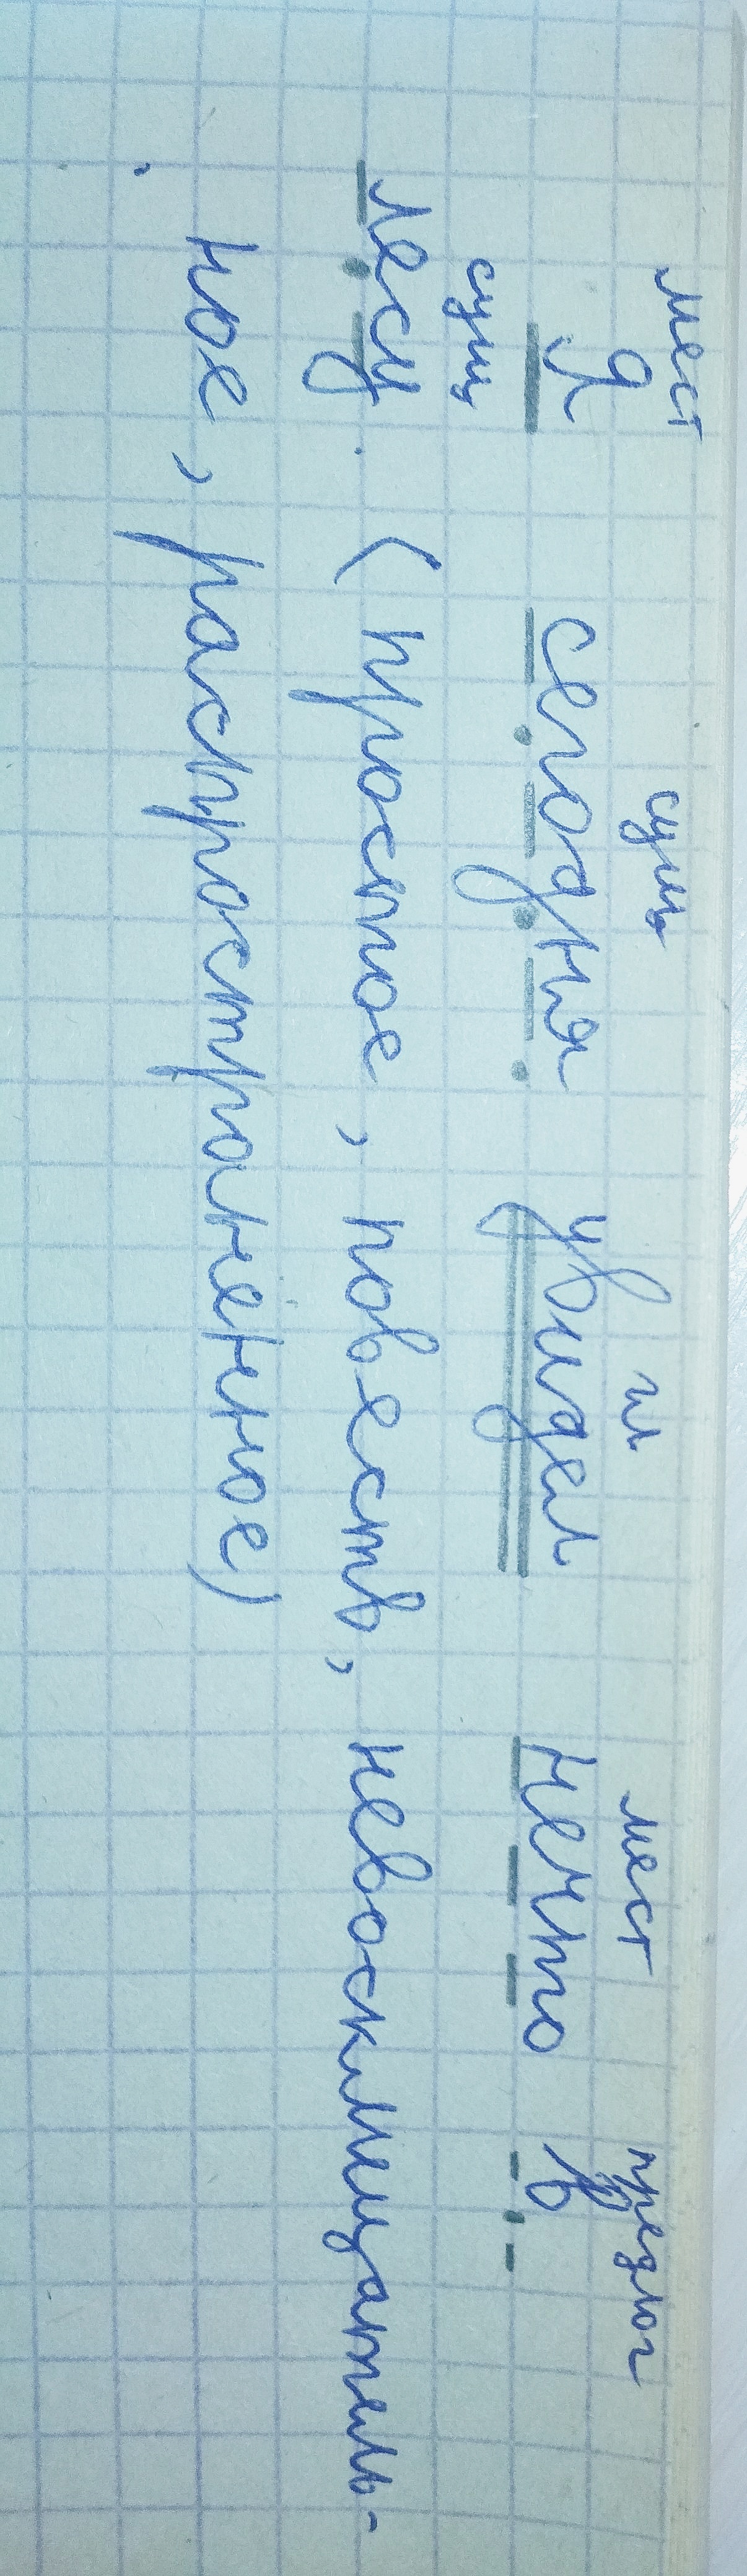 мест сущ гл мест предлог
Я сегодня увидел нечто в
сущ
лесу. (простое, повеств, невосклицатель-
ное, распространённое)